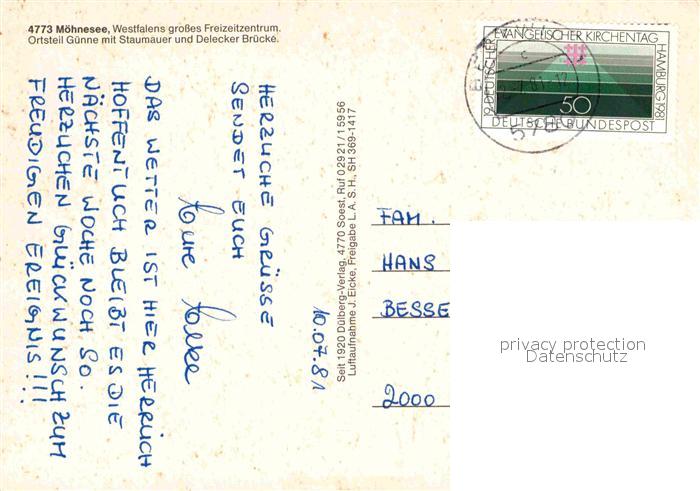 4773 Möhnesee, Westfalens großes Freizeitzentrum.
Ortsteil Günne mit Staumauer und Delecker Brücke.
HERZLICHE GRÜSSE
SENDET EUCH
Eure
DAS WETTER IST HIER HERRLICH
HOFFENTLICH BLEIBT ES DIE
NÄCHSTE WOCHE NOCH SO.
HERZLICHEN GLÜCKWUNSCH ZUM
FREUDIGEN EREIGNIS!!!
10.07.81
Seit 1920 Dülberg-Verlag, 4770 Soest, Ruf 0 29 21 / 1 59 56
Luftaufnahme J. Eicke, Freigabe L.A.S.H., SH 369-1417
19. DEUTSCHER EVANGELISCHER KIRCHENTAG HAMBURG 1981
50
DEUTSCHE BUNDESPOST
FAM.
HANS
BESSE
2000
privacy protection
Datenschutz